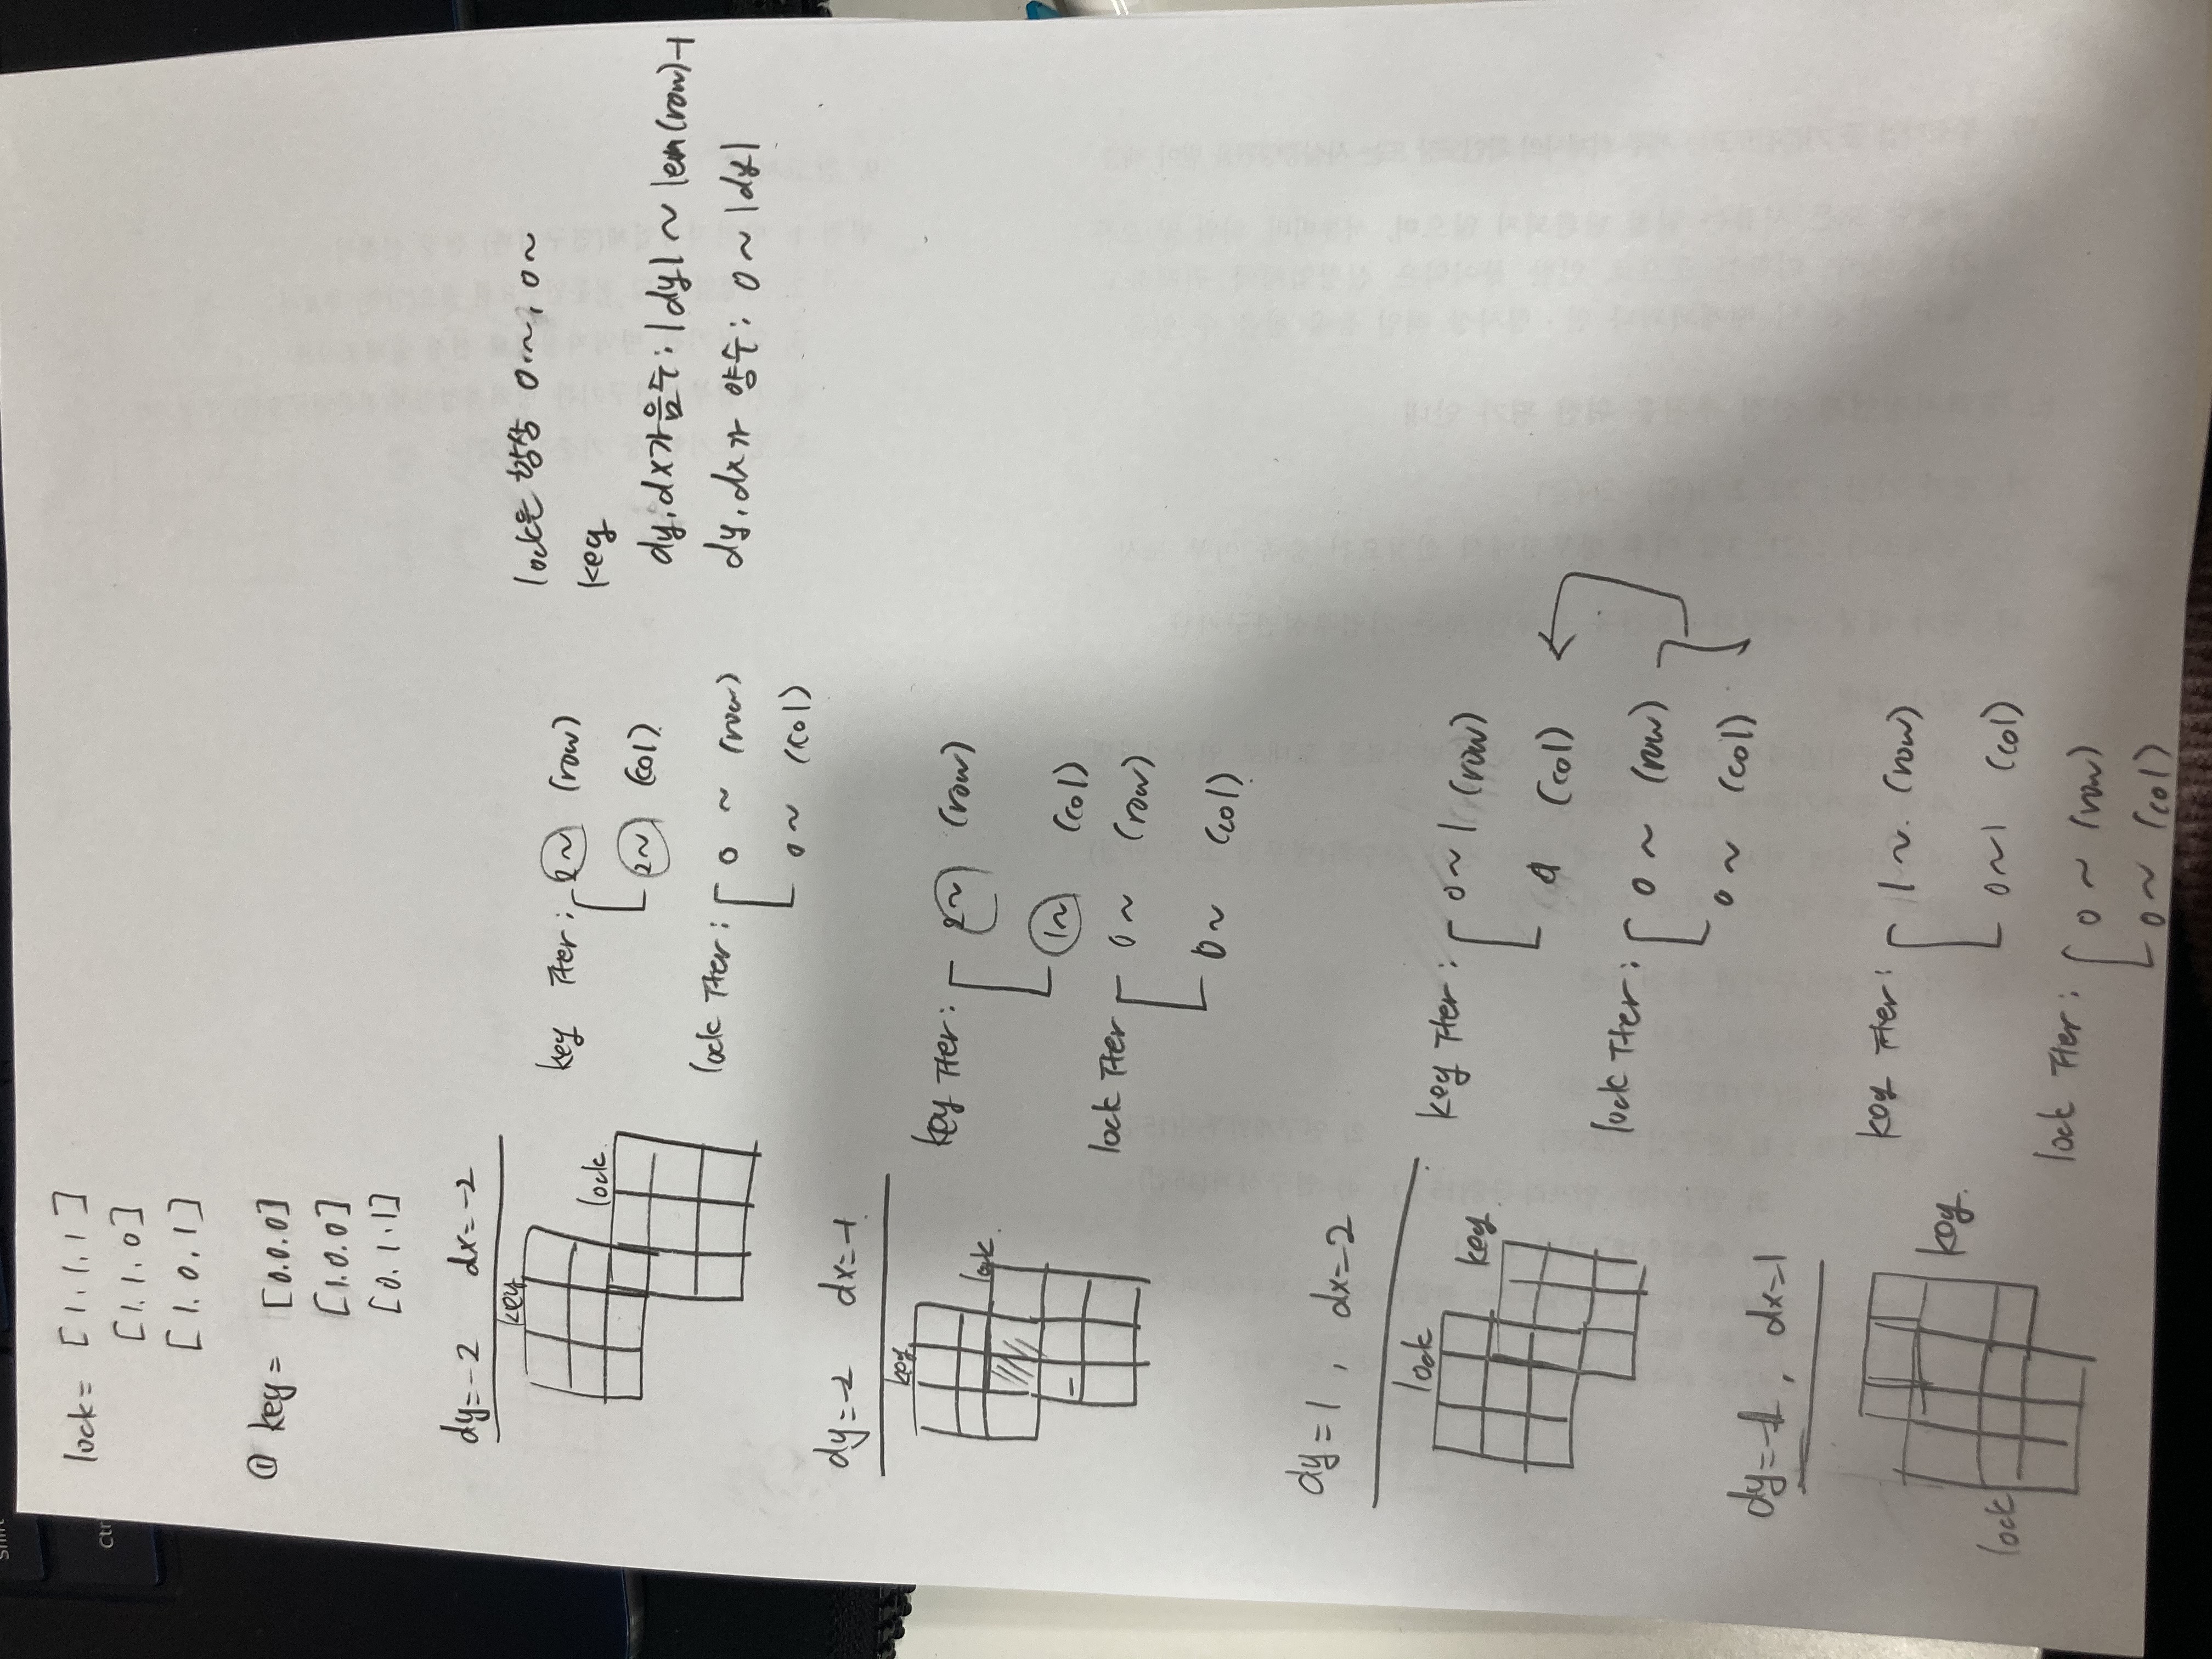 Shift
Ctr
lock = [1. 1. 1]
[1. 1. 0]
[1. 0. 1]
① key = [0.0.0]
[1.0.0]
[0. 1. 1]
dy=-2 dx=-2
key
lock
key Iter: 2~ (row)
2~ (col)
lock Iter: 0 ~ (row)
0~ (col)
lock은 항상 0~, 0~
key
dy, dx가 음수: |dy| ~ len(row)-1
dy, dx가 양수: 0~|dy|
dy=-2 dx=-1
key
lock
key Iter: 2~ (row)
1~ (col)
lock Iter 0~ (row)
0~ (col)
dy=1, dx=2
lock
key
key Iter: 0~1 (row)
0 (col)
lock Iter: 0 ~ (row)
0 ~ (col)
dy=-1, dx=1
key
lock
key Iter: 1~ (row)
0~1 (col)
lock Iter: 0 ~ (row)
0~ (col)